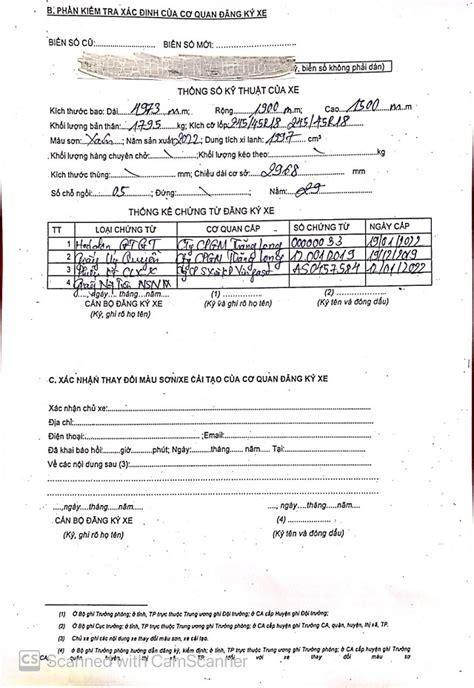 B. PHẦN KIỂM TRA XÁC ĐỊNH CỦA CƠ QUAN ĐĂNG KÝ XE
BIỂN SỐ CŨ:.................... BIỂN SỐ MỚI: ......................
, biển số không phải dán)
THÔNG SỐ KỸ THUẬT CỦA XE
Kích thước bao: Dài 4973 m.m; Rộng 1900 m.m; Cao 1500 m.m
Khối lượng bản thân: 1795 kg; Kích cỡ lốp 245/45R18 245/45R18
Màu sơn: Năm sản xuất 2022; Dung tích xi lanh: 1997 cm³
Khối lượng hàng chuyên chở: kg; Khối lượng kéo theo kg
Kích thước thùng: mm; Chiều dài cơ sở: 2968 mm
Số chỗ ngồi: 05 ; Đứng: Năm: 29
THỐNG KÊ CHỨNG TỪ ĐĂNG KÝ XE
TT LOẠI CHỨNG TỪ CƠ QUAN CẤP SỐ CHỨNG TỪ NGÀY CẤP
1 GTGT Cty CPGM Thăng Long 0000033 19/01/2022
2 Giấy Ủy Quyền Cty CPGM Thăng Long 19/12/2019
3 AS0457584 12/01/2022
4 NSNN
....., ngày... tháng...năm....
CÁN BỘ ĐĂNG KÝ XE
(Ký, ghi rõ họ tên)
(1) ......................
(Ký và ghi rõ họ tên)
(2) ......................
(Ký tên và đóng dấu)
C. XÁC NHẬN THAY ĐỔI MÀU SƠN/XE CẢI TẠO CỦA CƠ QUAN ĐĂNG KÝ XE
Xác nhận chủ xe:
Địa chỉ:
Điện thoại: ;Email:
Đã khai báo hồi:......giờ......phút; Ngày.......tháng...... năm..... Tại:
Về các nội dung sau (3):
....,ngày....tháng....năm....
CÁN BỘ ĐĂNG KÝ XE
(Ký, ghi rõ họ tên)
....,ngày....tháng....năm....
(4) ......................
(Ký tên, đóng dấu)
(1) Ở Bộ ghi Trưởng phòng; ở tỉnh, TP trực thuộc Trung ương ghi Đội trưởng; ở CA cấp huyện ghi Đội trưởng;
(2) Ở Bộ ghi Cục trưởng; ở tỉnh, TP trực thuộc Trung ương ghi Trưởng phòng; ở cấp huyện ghi Trưởng CA, quận, huyện, thị xã, TP.
(3) Chủ xe ghi các nội dung xe thay đổi màu sơn, xe cải tạo.
(4) ở Bộ ghi Trưởng phòng hướng dẫn đăng ký, kiểm định; ở tỉnh, TP trực thuộc Trung ương ghi Trưởng phòng; ở CA cấp huyện ghi Trưởng
CA, quận, huyện, thị xã, TP đối với xe thay đổi màu sơn
CS Scanned with CamScanner